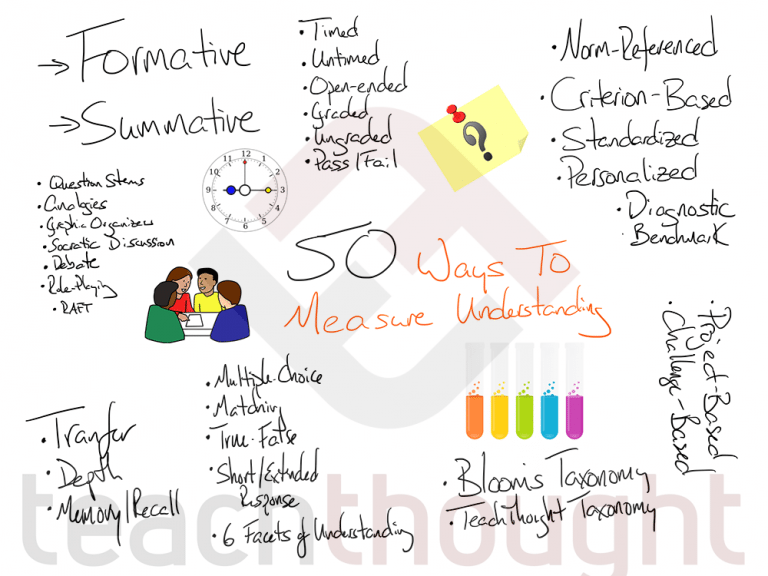 → Formative
→ Summative
• Question Stems
• Analogies
• Graphic Organizers
• Socratic Discussion
• Debate
• Role-Playing
• RAFT
• Timed
• Untimed
• Open-ended
• Graded
• Ungraded
• Pass/Fail
11 12 1
10 2
9 3
8 4
7 6 5
?
• Norm-Referenced
• Criterion-Based
• Standardized
• Personalized
• Diagnostic
• Benchmark
50 Ways To
Measure Understanding
• Project-Based
• Challenge-Based
• Tranfer
• Depth
• Memory/Recall
• Multiple-Choice
• Matching
• True-False
• Short/Extended
Response
• 6 Facets of Understanding
• Bloom's Taxonomy
• TeachThought Taxonomy
teachthought